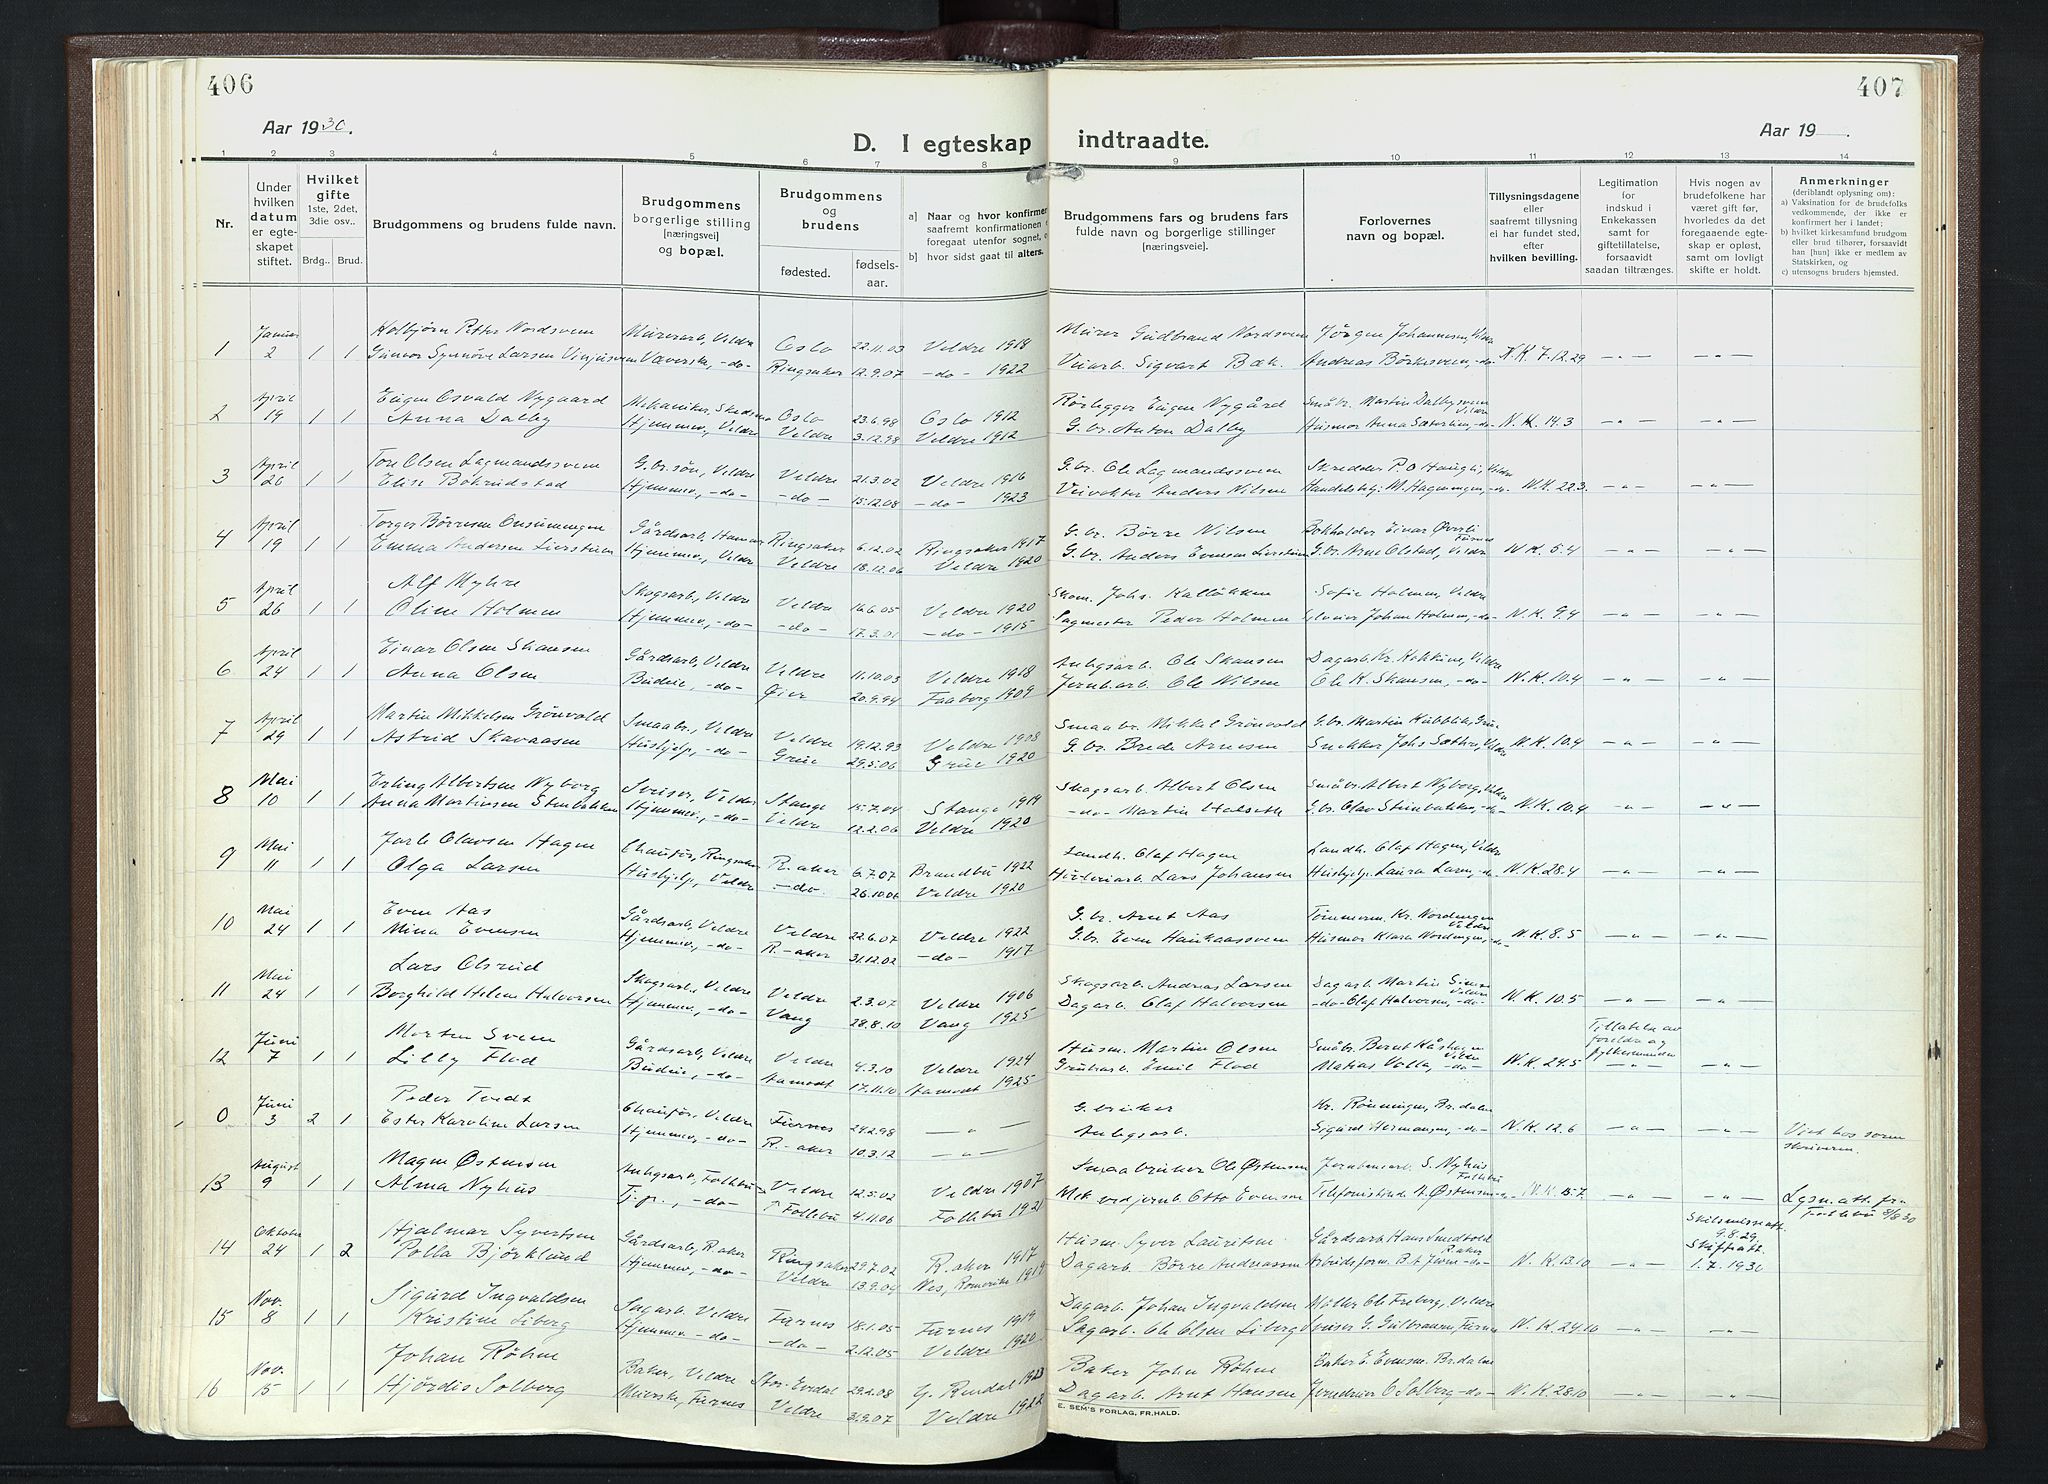 406
407
Aar 1930.
Aar 19    .
D. I egteskap indtraadte.
1 2 3 4 5 6 7 8 9 10 11 12 13 14
Nr.
Under hvilken datum er egteskapet stiftet.
Hvilket gifte
1ste, 2det, 3die osv..
Brdg.. Brud.
Brudgommens og brudens fulde navn.
Brudgommens borgerlige stilling [næringsvei] og bopæl.
Brudgommens og brudens
fødested.
fødselsaar.
a] Naar og hvor konfirmer
saafremt konfirmationen
foregaat utenfor sognet,
b] hvor sidst gaat til alters.
Brudgommens fars og brudens fars fulde navn og borgerlige stillinger [næringsveie].
Forlovernes navn og bopæl.
Tillysningsdagene eller saafremt tillysning ei har fundet sted, efter hvilken bevilling.
Legitimation for indskud i Enkekassen samt for giftetillatelse, forsaavidt saadan tiltrænges.
Hvis nogen av brudefolkene har været gift før, hvorledes da det foregaaende egteskap er opløst, samt om lovlig skifte er holdt.
Anmerkninger
(deriblandt oplysning om):
a) Vaksination for de brudefolks vedkommende, der ikke er konfirmert her i landet;
b) hvilket kirkesamfund brudgom eller brud tilhører, forsaavidt han [hun] ikke er medlem av Statskirken, og
c) utensogns bruders hjemsted.
Januar Kolbjørn Petter Nordsveen Murerarb, Veldre Oslo 22.11.03 Veldre 1918 Murer Gudbrand Nordsveen Jørgen Johannesen, Veldre
1 2 1 1 Gunvor Synnøve Larsen Væverske, -do- Ringsaker 12.9.07 -do- 1922 Veiarb. Sigvart Bæk. Andreas Børkesveen, -do- N.K. 7.12.29 — „ — — „ —
April Eugen Osvald Nygaard Mekaniker, Oslo 23.6.98 Oslo 1912 Rørlegger Eugen Nygård Småbr. Martin Dalbysveen Veldre
2 19 1 1 Anna Dalby Hjemmev., Veldre Veldre 3.12.98 Veldre 1912 G.br. Anton Dalby Husmor Anna Sæterlien, -do- N.K. 14.3 — „ — — „ —
April Tore Olsen Lagmandssveen G.br.søn, Veldre Veldre 21.3.02 Veldre 1916 G.br. Ole Lagmandssveen Skredder P.O. Haugli, Veldre
3 26 1 1 Elise Bøkrudstad Hjemmev., -do- -do- 15.12.08 -do- 1923 Veivokter Anders Nilsen N.K. 22.3. — „ — — „ —
April Torger Børresen Gårdsarb, Ringsaker 6.12.02 Ringsaker 1917 G.br. Børre Nilsen Bokholder Einar Øverli Furnes
4 19 1 1 Emma Andersen Lierstuen Hjemmev., Veldre Veldre 18.12.06 Veldre 1920 G.br. Anders Evensen Lierstuen G.br. Arne Olstad, Veldre N.K. 5.4 — „ — — „ —
April Alf Myhre Skogsarb, Veldre Veldre 16.6.05 Veldre 1920 Skom. Johs. Kalløkken Sofie Holmen, Veldre
5 26 1 1 Oline Holmen Hjemmev., -do- -do- 17.3.01 -do- 1915 Sagmester Peder Holmen Johan Holmen, -do- N.K. 9.4 — „ — — „ —
April Einar Olsen Skansen Gårdsarb, Veldre Veldre 11.10.03 Veldre 1918 Anlegsarb. Ole Skansen Dagarb. Kr. Veldre
6 24 1 1 Anna Olsen Budeie, -do- Gjer 20.9.94 Faaberg 1909 Jernb.arb. Ole Nilsen Ole K. Skansen, -do- N.K. 10.4 — „ — — „ —
April Martin Mikkelsen Grønvold Smaabr., Veldre Veldre 19.12.93 Veldre 1908 Smaabr. Mikkel Grønvold G.br. Martin Kubblik, Grue
7 29 1 1 Astrid Skavaasen Hushjelp, -do- Grue 29.5.06 Grue 1920 G.br. Brede Arnesen Snekker Johs Sætter, Veldre N.K. 10.4 — „ — — „ —
Mai Erling Albertsen Nyborg Sveiser, Veldre Stange 15.7.04 Stange 1919 Skogsarb. Albert Olsen Småbr. Albert Nyborg, Veldre
8 10 1 1 Anna Martinsen Stenbakken Hjemmev., -do- Veldre 12.2.06 Veldre 1920 -do- Martin Halseth G.br. Olav Stenbakken, -do- N.K. 10.4 — „ — — „ —
Mai Jarle Olavsen Hagen Chaufør, Ringsaker R.-aker 6.7.07 Brandbu 1922 Landh. Olaf Hagen Landh. Olaf Hagen, Veldre
9 11 1 1 Olga Larsen Hushjelp, Veldre -do- 26.10.06 Veldre 1920 Lars Johansen Hushjelp Laura Larsen, -do- N.K. 28.4 — „ — — „ —
Mai Even Aas Gårdsarb, Veldre Veldre 22.6.07 Veldre 1922 G.br. Arnt Aas Tømmerm. Kr. Nordengen Veldre
10 24 1 1 Mina Evensen Hjemmev, -do- R.-aker 31.12.02 -do- 1917 G.br. Even Haukaassveen Husmor Klara Nordengen, -do- N.K. 8.5 — „ — — „ —
Mai Lars Olsrud Skogsarb, Veldre Veldre 2.3.07 Veldre 1906 Skogsarb. Andreas Larsen Dagarb. Martin Simen Veldre
11 24 1 1 Borghild Helene Halvorsen Hjemmev, -do- Vang 28.8.10 Vang 1925 Dagarb. Olaf Halvorsen -do- Olaf Halvorsen, -do- N.K. 10.5 — „ — — „ —
Juni Morten Sveen Gårdsarb, Veldre Veldre 4.3.10 Veldre 1924 Husm. Martin Olsen Småbr. Bernt Kåshagen Veldre Tillatelse av foreldre og fylkesmannen
12 7 1 1 Lilly Flod Budeie, -do- Aamodt 17.11.10 Aamodt 1925 Grubarb. Emil Flod Matias Volla, -do- N.K. 24.5 — „ — — „ —
Juni Peder Tvedt Chaufør, Veldre Furnes 24.2.98 — „ — G.bruker Kr. Rønningen, Br.dalen
0 3 2 1 Ester Karoline Larsen Hjemmev, -do- R.-aker 10.3.12 — „ — Anlegsarb. Sigurd Hermansen, -do- N.K. 12.6 — „ — — „ — Viet hos soren skriveren.
August Magne Østensen Anlegsarb, Follebu Veldre 12.5.02 Veldre 1907 Smaabruker Ole Østensen Jernbanearb. S. Nyhus Follebu
13 9 1 1 Alma Nyhus Tj.p., -do- Follebu 4.11.06 Follebu 1921 Mek ved jernb. Otto Evensen Telefonistinde A. Østensen -do- N.K. 15.7 — „ — — „ — Lysn.att. fra Follebu 8/8 30
Oktober Hjalmar Syvertsen Gårdsarb, R.aker Ringsaker 29.7.02 R.aker 1917 Husm. Syver Lauritsen Gårdsarb Hans Smedvold R.aker Skilsmisseatt. 9.8.29.
14 24 1 2 Polla Bjørklund Hjemmev, -do- Veldre 13.9.04 Nes, Romerike 1919 Dagarb. Børre Andreassen Arbeidsform. B.A. -do- N.K. 13.10 — „ — Skifteatt. 1.7.1930
Nov. Sigurd Ingvaldsen Sagarb. Veldre Furnes 18.1.05 Furnes 1919 Dagarb. Johan Ingvaldsen Møller Ole Freberg, Veldre
15 8 1 1 Kristine Liberg Hjemmev -do- -do- 2.12.05 Veldre 1920 Sagarb. Ole Olsen Liberg Sveiser G. Gulbransen, Furnes N.K. 24.10 — „ — — „ —
Nov. Johan Røhne Baker, Veldre Stor-Evdal 29.2.08 Y. Rendal 1923 Baker John Røhne Baker E. Evensen Br.dalen
16 15 1 1 Hjørdis Solberg Meierske, Furnes Veldre 3.9.07 Veldre 1922 Dagarb. Arnt Hansen Jerndreier O. Solberg -do- N.K. 28.10 — „ — — „ —
E. SEM'S FORLAG, FR.HALD.